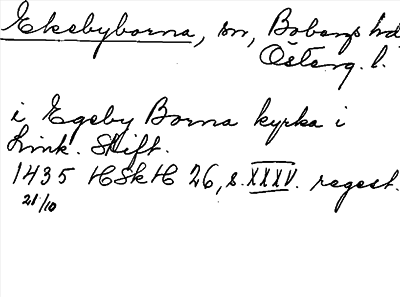 Ekebyborna, sn, Bobergs hd
Österg. l.
i Egeby Borna kyrka i
Link. Stift.
1435 HSkH 26, s. XXXV. regest.
21/10